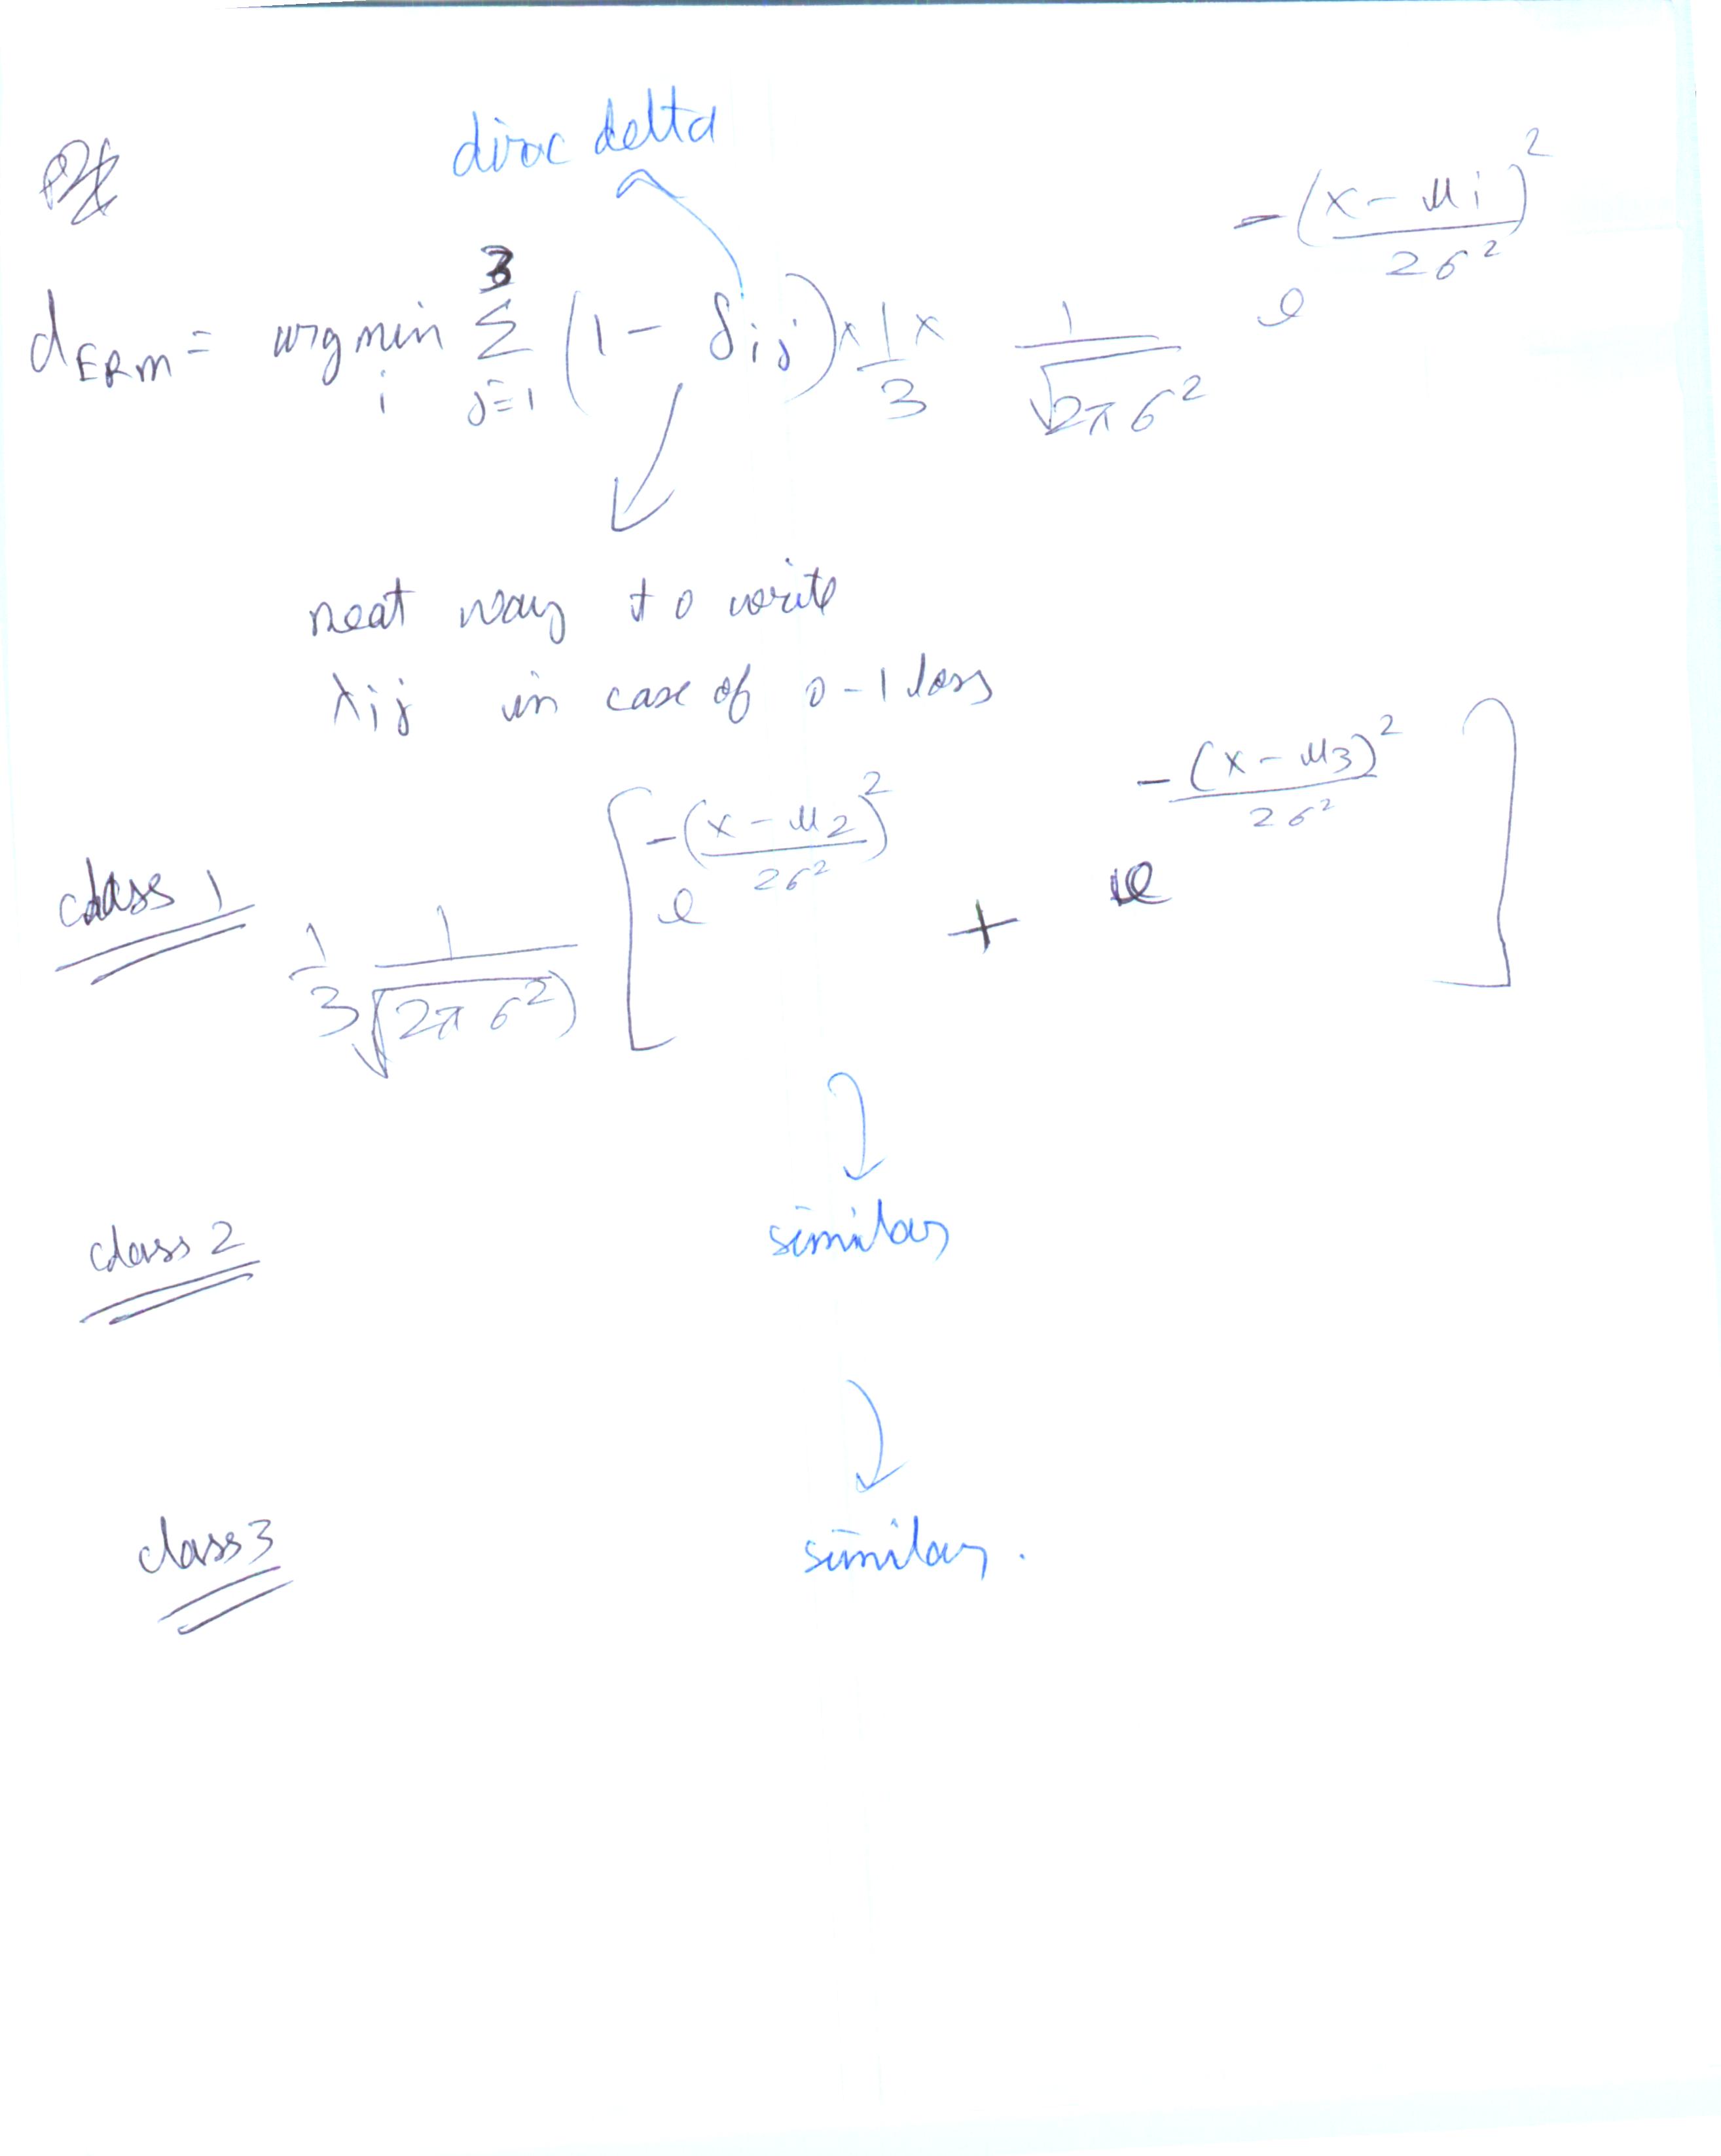 dirac delta
d_ERM = argmin_i Σ_{j=1}^{3} (1 - δ_ij) × 1/3 × 1/√(2πσ²) e^{-(x - μ_i)²/2σ²}
neat way to write
λ_ij in case of 0-1 loss
class 1
1/3 1/√(2πσ²) [ e^{-(x - μ_2)²/2σ²} + e^{-(x - μ_3)²/2σ²} ]
class 2 similar
class 3 similar.